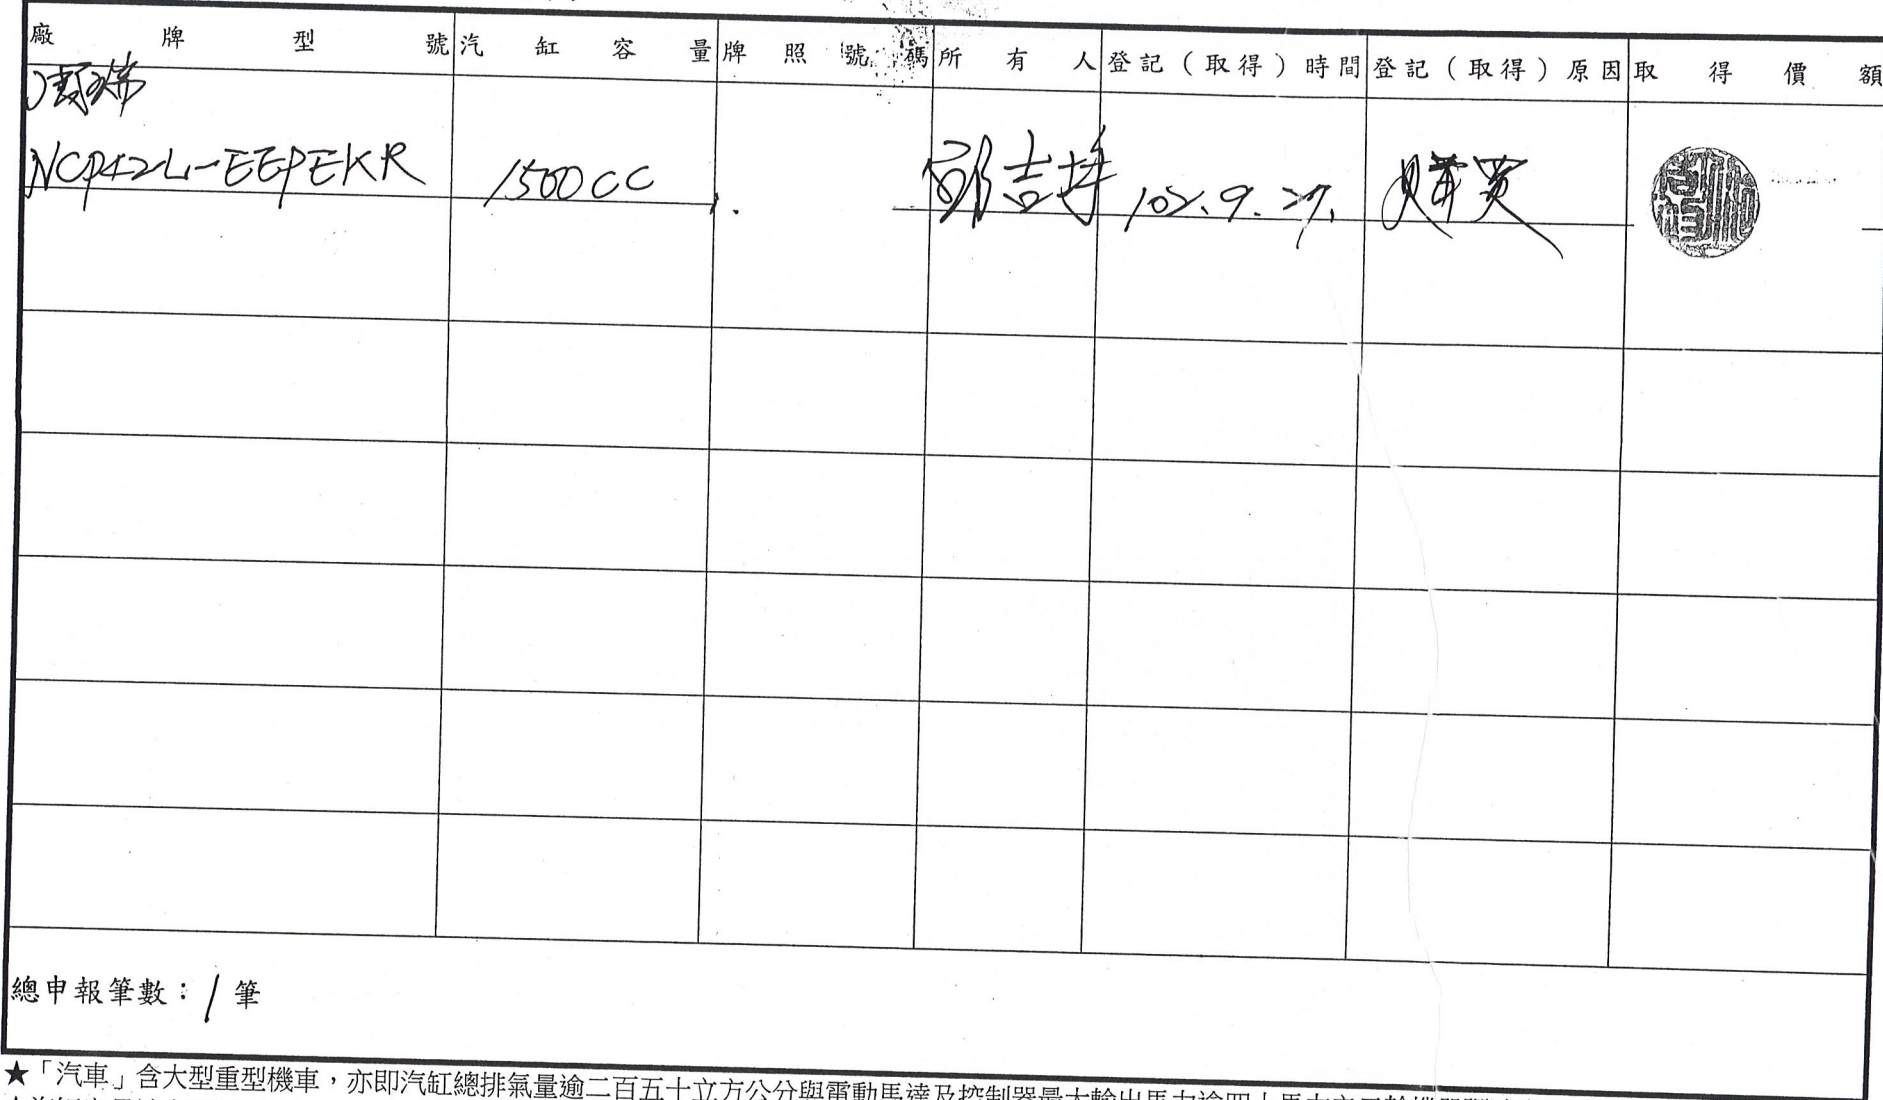 廠牌型號 汽缸容量 牌照號碼 所有人 登記（取得）時間 登記（取得）原因 取得價額
NCP42L-EEPEKR 1500CC 102.9.27. 購買
總申報筆數：1筆
★「汽車」含大型重型機車，亦即汽缸總排氣量逾二百五十立方公分與電動馬達及控制器最大輸出馬力逾四十馬力